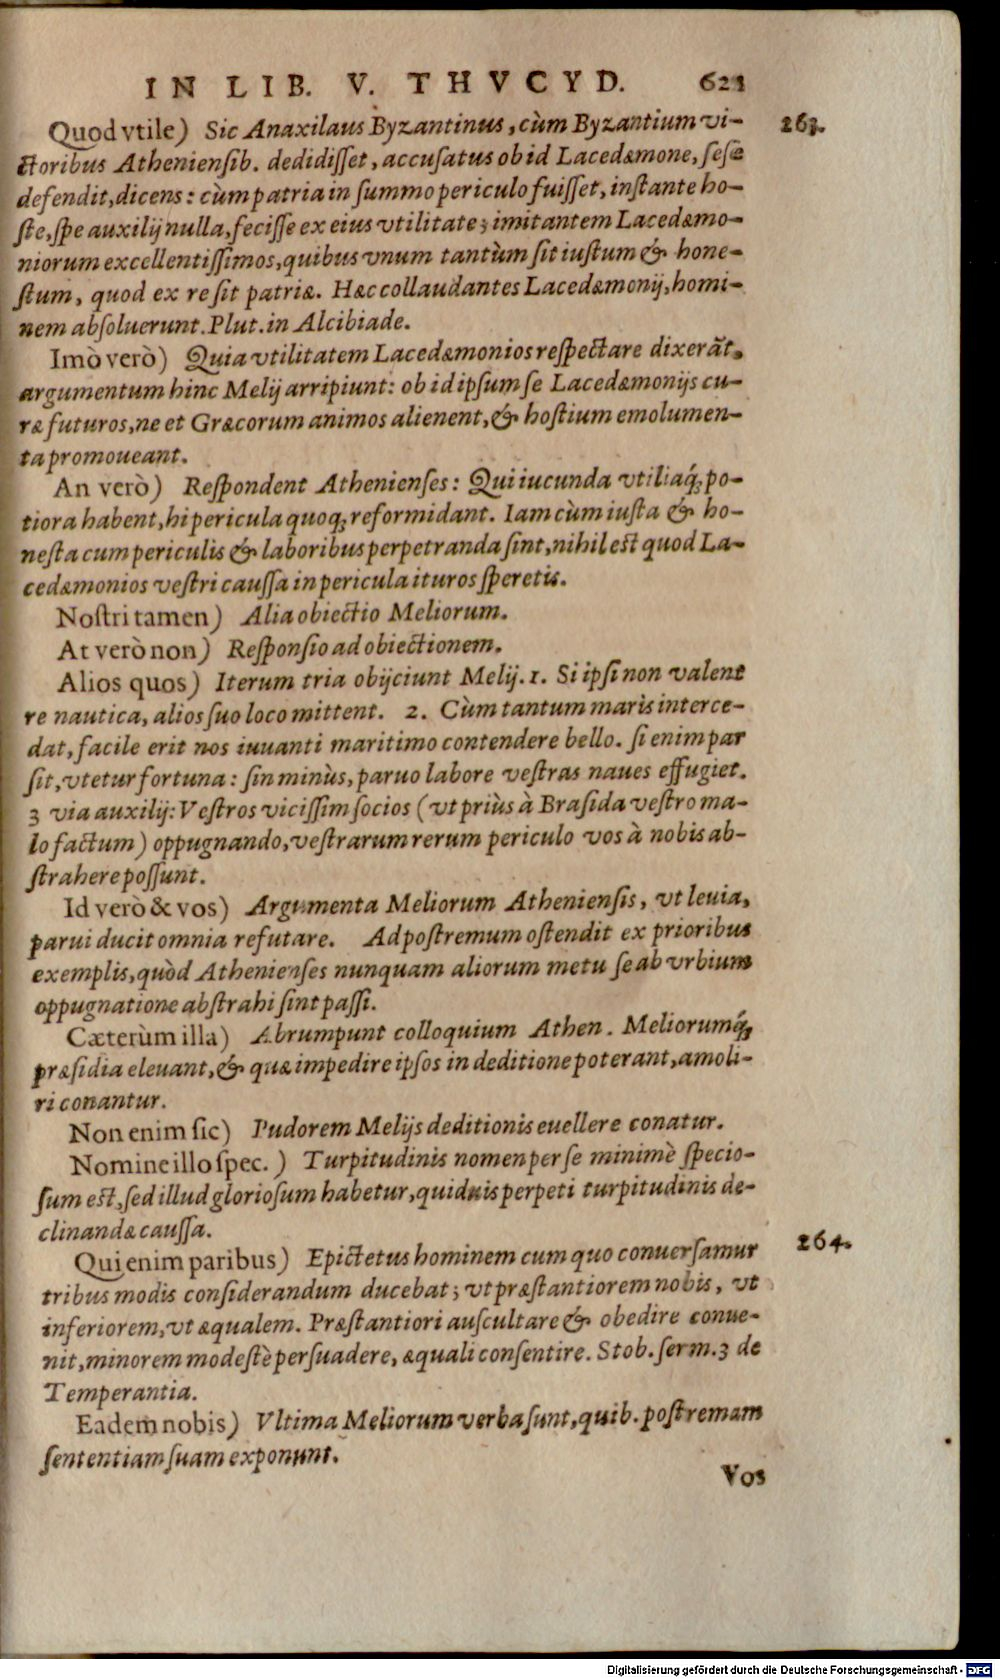 IN LIB. V. THVCYD. 621
Quod vtile) Sic Anaxilaus Byzantinus, cùm Byzantium vi- 263.
ctoribus Atheniensib. dedidisset, accusatus ob id Lacedæmone, sese
defendit, dicens: cùm patria in summo periculo fuisset, instante ho-
ste, spe auxilij nulla, fecisse ex eius vtilitate; imitantem Lacedæmo-
niorum excellentissimos, quibus vnum tantùm sit iustum & hone-
stum, quod ex re sit patriæ. Hæc collaudantes Lacedæmonij, homi-
nem absoluerunt. Plut. in Alcibiade.
Imò verò) Quia vtilitatem Lacedæmonios respectare dixerãt,
argumentum hinc Melij arripiunt: ob id ipsum se Lacedæmonijs cu-
ræ futuros, ne et Græcorum animos alienent, & hostium emolumen-
ta promoueant.
An verò) Respondent Athenienses: Qui iucunda vtiliaq́; po-
tiora habent, hi pericula quoq; reformidant. Iam cùm iusta & ho-
nesta cum periculis & laboribus perpetranda sint, nihil est quod La-
cedæmonios vestri caussa in pericula ituros speretis.
Nostri tamen) Alia obiectio Meliorum.
At verò non) Responsio ad obiectionem.
Alios quos) Iterum tria obijciunt Melij. 1. Si ipsi non valent
re nautica, alios suo loco mittent. 2. Cùm tantum maris interce-
dat, facile erit nos iuuanti maritimo contendere bello. si enim par
sit, vtetur fortuna: sin minùs, paruo labore vestras naues effugiet.
3 via auxilij: Vestros vicissim socios (vt priùs à Brasida vestro ma-
lo factum) oppugnando, vestrarum rerum periculo vos à nobis ab-
strahere possunt.
Id verò & vos) Argumenta Meliorum Atheniensis, vt leuia,
parui ducit omnia refutare. Ad postremum ostendit ex prioribus
exemplis, quòd Athenienses nunquam aliorum metu se ab vrbium
oppugnatione abstrahi sint passi.
Cæterùm illa) Abrumpunt colloquium Athen. Meliorumq́;
præsidia eleuant, & quæ impedire ipsos in deditione poterant, amoli-
ri conantur.
Non enim sic) Pudorem Melijs deditionis euellere conatur.
Nomine illo spec.) Turpitudinis nomen per se minimè specio-
sum est, sed illud gloriosum habetur, quiduis perpeti turpitudinis de-
clinandæ caussa.
Qui enim paribus) Epictetus hominem cum quo conuersamur 264.
tribus modis considerandum ducebat; vt præstantiorem nobis, vt
inferiorem, vt æqualem. Præstantiori auscultare & obedire conue-
nit, minorem modestè persuadere, æquali consentire. Stob. serm. 3 de
Temperantia.
Eadem nobis) Vltima Meliorum verba sunt, quib. postremam
sententiam suam exponunt.
Vos
Digitalisierung gefördert durch die Deutsche Forschungsgemeinschaft - DFG